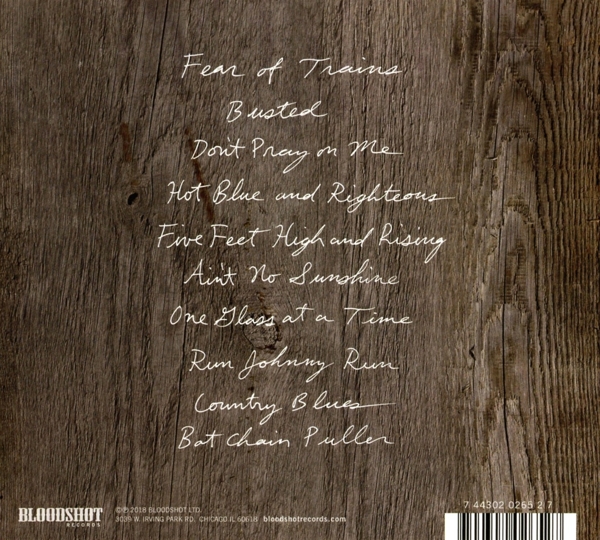 Fear of Trains
Busted
Don't Pray on Me
Hot Blue and Righteous
Five Feet High and Rising
Ain't No Sunshine
One Glass at a Time
Run Johnny Run
Country Blues
Bat Chain Puller
BLOODSHOT
RECORDS
©℗ 2018 BLOODSHOT LTD.
3039 W. IRVING PARK RD. CHICAGO IL 60618 bloodshotrecords.com
7 44302 0265 2 7